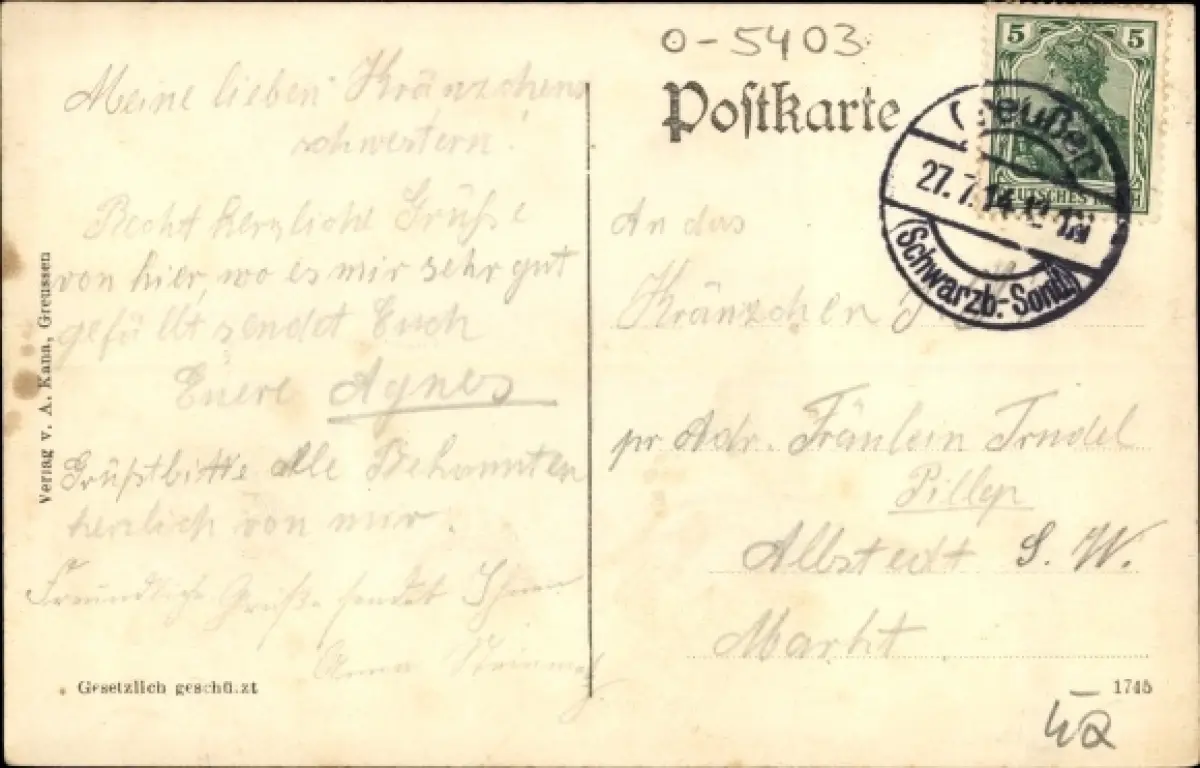 o-5403
Postkarte
5 5
DEUTSCHES REICH
reußen
27.7.14.12-1N
(Schwarzb.-Sond.)
Meine lieben Kränzchens
schwestern.
Recht herzliche Grüße
von hier, wo es mir sehr gut
gefällt sendet Euch
Euere Agnes
Grüßt bitte Alle Bekannten
herzlich von mir.
Freundliche Grüße sendet Ihnen
Anna
An das
Kränzchen
pr Adr. Fräulein Trudel
Pillep
Allstedt S. W.
Markt.
Verlag v. A. Kann, Greussen
Gesetzlich geschützt
1745